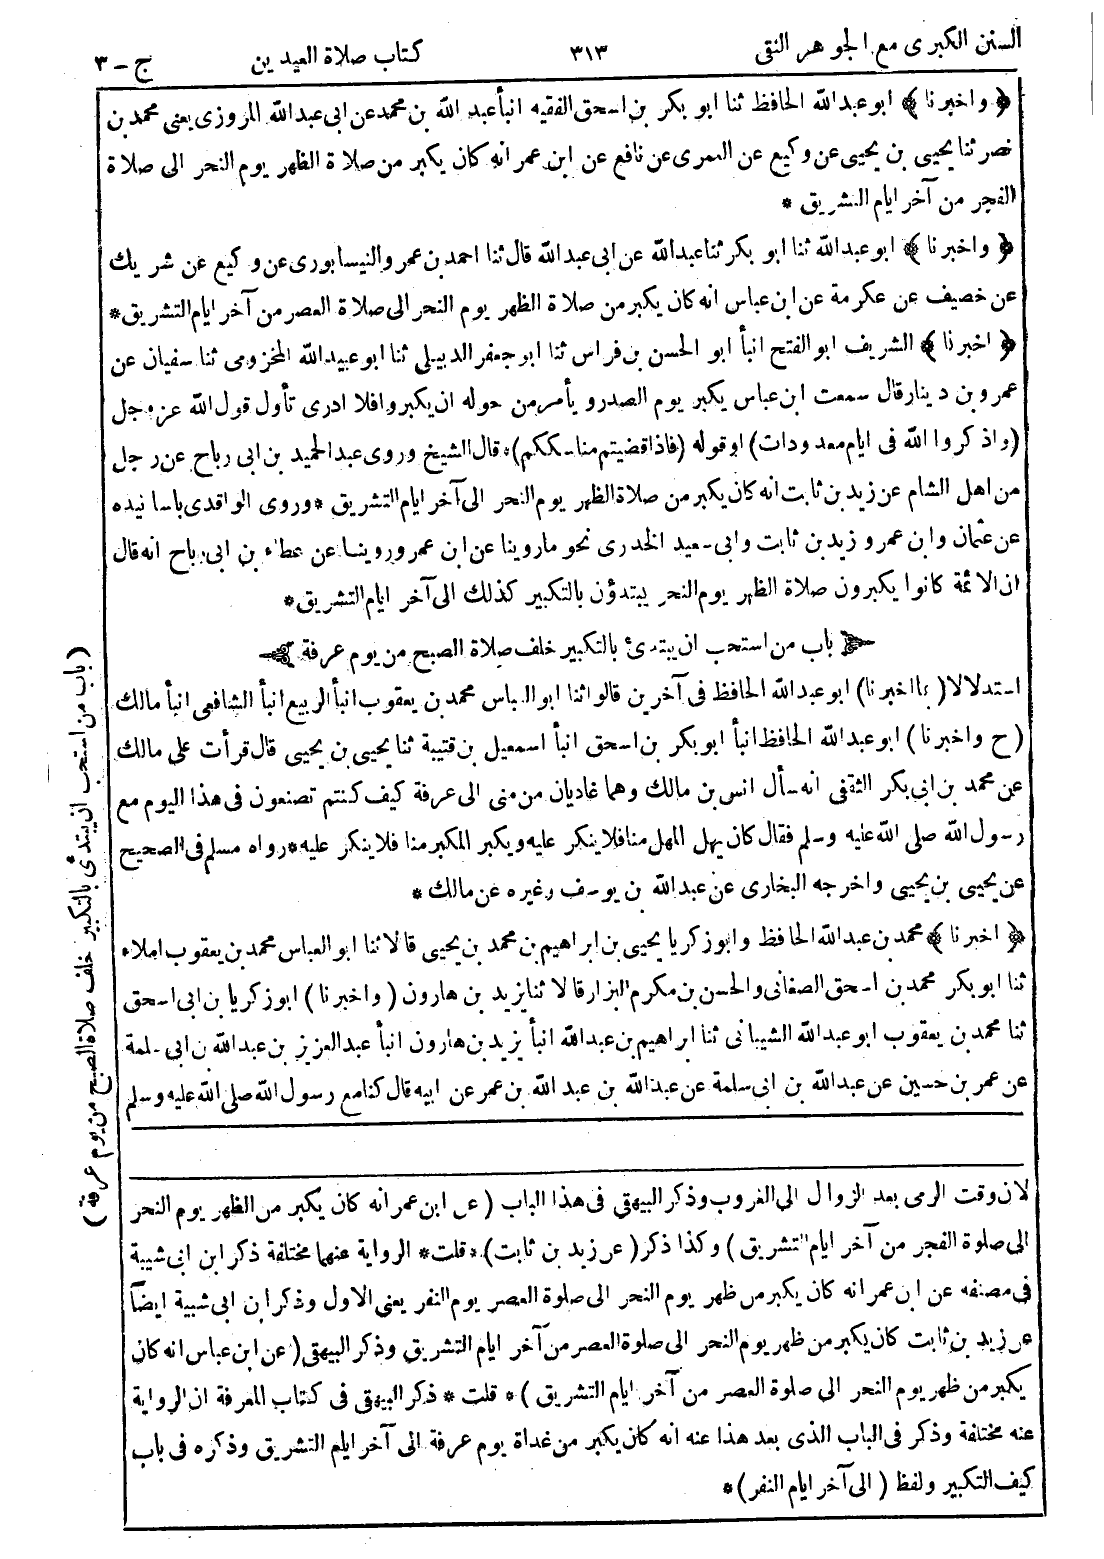 السنن الكبرى مع الجوهر النقى ٣١٣ كتاب صلاة العيدين ج - ٣
﴿ واخبرنا ﴾ ابو عبد الله الحافظ ثنا ابو بكر بن اسحق الفقيه انبأ عبد الله بن محمد عن ابى عبد الله المروزى يعنى محمد بن
نصر ثنا يحيى بن يحيى عن وكيع عن العمرى عن نافع عن ابن عمر انه كان يكبر من صلاة الظهر يوم النحر الى صلاة
الفجر من آخر ايام التشريق *
﴿ واخبرنا ﴾ ابو عبد الله ثنا ابو بكر ثنا عبد الله عن ابى عبد الله قال ثنا احمد بن عمرو النيسابورى عن وكيع عن شريك
عن خصيف عن عكرمة عن ابن عباس انه كان يكبر من صلاة الظهر يوم النحر الى صلاة العصر من آخر ايام التشريق *
﴿ اخبرنا ﴾ الشريف ابو الفتح انبأ ابو الحسن بن فراس ثنا ابو جعفر الديبلى ثنا ابو عبيد الله المخزومى ثنا سفيان عن
عمرو بن دينار قال سمعت ابن عباس يكبر يوم الصدر ويأمر من حوله ان يكبروا فلا ادرى تأول قول الله عز وجل
(واذكروا الله فى ايام معدودات) او قوله (فاذا قضيتم مناسككم) * قال الشيخ وروى عبد الحميد بن ابى رباح عن رجل
من اهل الشام عن زيد بن ثابت انه كان يكبر من صلاة الظهر يوم النحر الى آخر ايام التشريق * وروى الواقدى باسانيده
عن عثمان وابن عمر وزيد بن ثابت وابى سعيد الخدرى نحو ما روينا عن ابن عمر وروينا عن عطاء بن ابى رباح انه قال
ان الائمة كانوا يكبرون صلاة الظهر يوم النحر يبتدؤن بالتكبير كذلك الى آخر ايام التشريق *
باب من استحب ان يبتدئ بالتكبير خلف صلاة الصبح من يوم عرفة
استدلالا (بما اخبرنا) ابو عبد الله الحافظ فى آخرين قالوا ثنا ابو العباس محمد بن يعقوب انبأ الربيع انبأ الشافعى انبأ مالك
(ح واخبرنا) ابو عبد الله الحافظ انبأ ابو بكر بن اسحق انبأ اسمعيل بن قتيبة ثنا يحيى بن يحيى قال قرأت على مالك
عن محمد بن ابى بكر الثقفى انه سأل انس بن مالك وهما غاديان من منى الى عرفة كيف كنتم تصنعون فى هذا اليوم مع
رسول الله صلى الله عليه وسلم فقال كان يهل المهل منا فلا ينكر عليه ويكبر المكبر منا فلا ينكر عليه * رواه مسلم فى الصحيح
عن يحيى بن يحيى واخرجه البخارى عن عبد الله بن يوسف وغيره عن مالك *
﴿ اخبرنا ﴾ محمد بن عبد الله الحافظ وابو زكريا يحيى بن ابراهيم بن محمد بن يحيى قالا ثنا ابو العباس محمد بن يعقوب املاء
ثنا ابو بكر محمد بن اسحق الصغانى والحسن بن مكرم البزار قالا ثنا يزيد بن هارون (واخبرنا) ابو زكريا بن ابى اسحق
ثنا محمد بن يعقوب ابو عبد الله الشيبانى ثنا ابراهيم بن عبد الله انبأ يزيد بن هارون انبأ عبد العزيز بن عبد الله بن ابى سلمة
عن عمر بن حسين عن عبد الله بن ابى سلمة عن عبد الله بن عبد الله بن عمر عن ابيه قال كنا مع رسول الله صلى الله عليه وسلم
(باب من استحب ان يبتدئ بالتكبير خلف صلاة الصبح من يوم عرفة)
لان وقت الرمى بعد الزوال الى الغروب وذكر البيهقى فى هذا الباب (عن ابن عمر انه كان يكبر من الظهر يوم النحر
الى صلوة الفجر من آخر ايام التشريق) وكذا ذكر (عن زيد بن ثابت) * قلت * الرواية عنهما مختلفة ذكر ابن ابى شيبة
فى مصنفه عن ابن عمر انه كان يكبر من ظهر يوم النحر الى صلوة العصر يوم النفر يعنى الاول وذكر ابن ابى شيبة ايضاً
عن زيد بن ثابت كان يكبر من ظهر يوم النحر الى صلوة العصر من آخر ايام التشريق وذكر البيهقى (عن ابن عباس انه كان
يكبر من ظهر يوم النحر الى صلوة العصر من آخر ايام التشريق) * قلت * ذكر البيهقى فى كتاب المعرفة ان الرواية
عنه مختلفة وذكر فى الباب الذى بعد هذا عنه انه كان يكبر من غداة يوم عرفة الى آخر ايام التشريق وذكره فى باب
كيف التكبير ولفظ (الى آخر ايام النفر) *